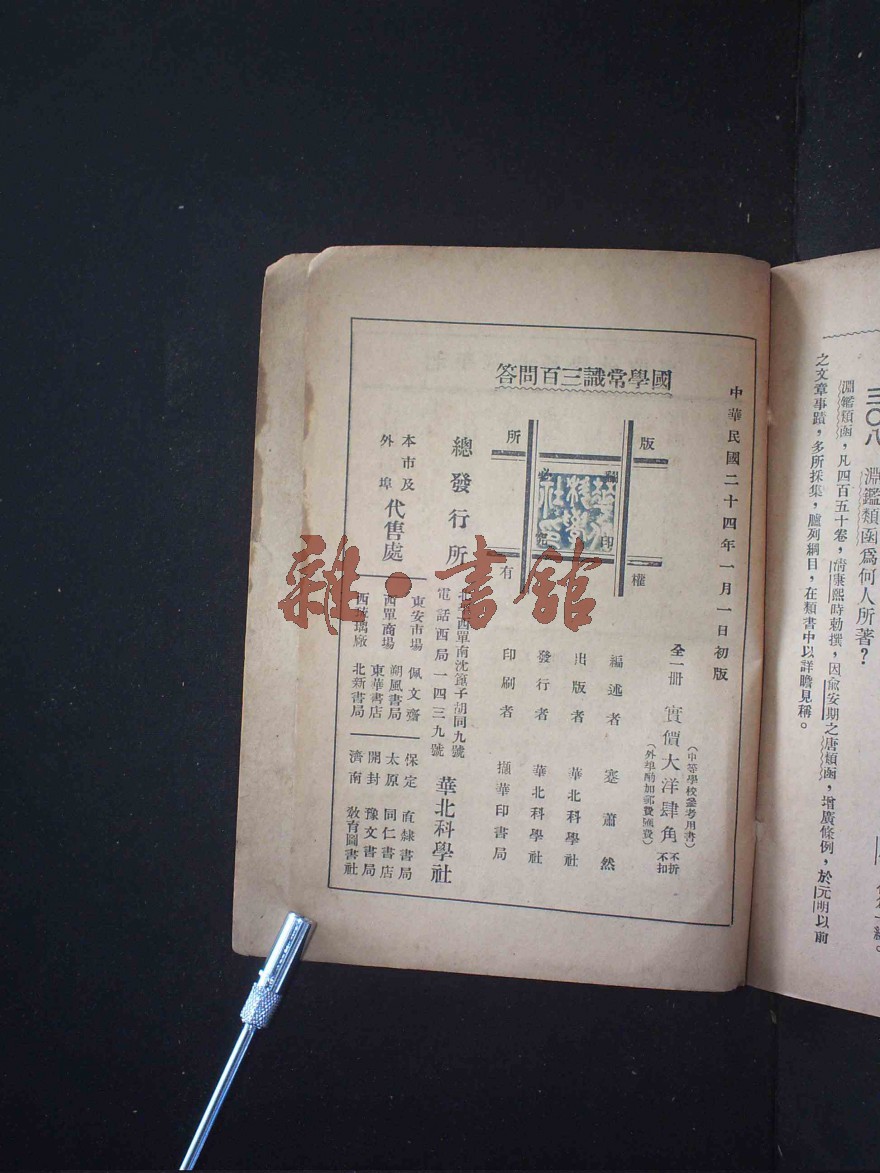 三〇八　淵鑑類函爲何人所著？
淵鑑類函，凡四百五十卷，淸康熙時勅撰，因兪安期之唐類函，增廣條例，於元明以前
之文章事蹟，多所採集，臚列綱目，在類書中以詳贍見稱。
中華民國二十四年一月一日初版
國學常識三百問答
版權所有
翻印必究
全一册　實價大洋肆角　不折不扣
（中等學校參考用書）
（外埠酌加郵費匯費）
編述者　蹇蕭然
出版者　華北科學社
發行者　華北科學社
印刷者　擷華印書局
總發行所
北平西單南沈篦子胡同九號
電話西局一四三九號
華北科學社
本市及外埠代售處
東安市場　佩文齋
西單商場　朔風書局
東華書店
西琉璃廠　北新書局
保定　直隸書局
太原　同仁書店
開封　豫文書局
濟南　敎育圖書社
雜·書館